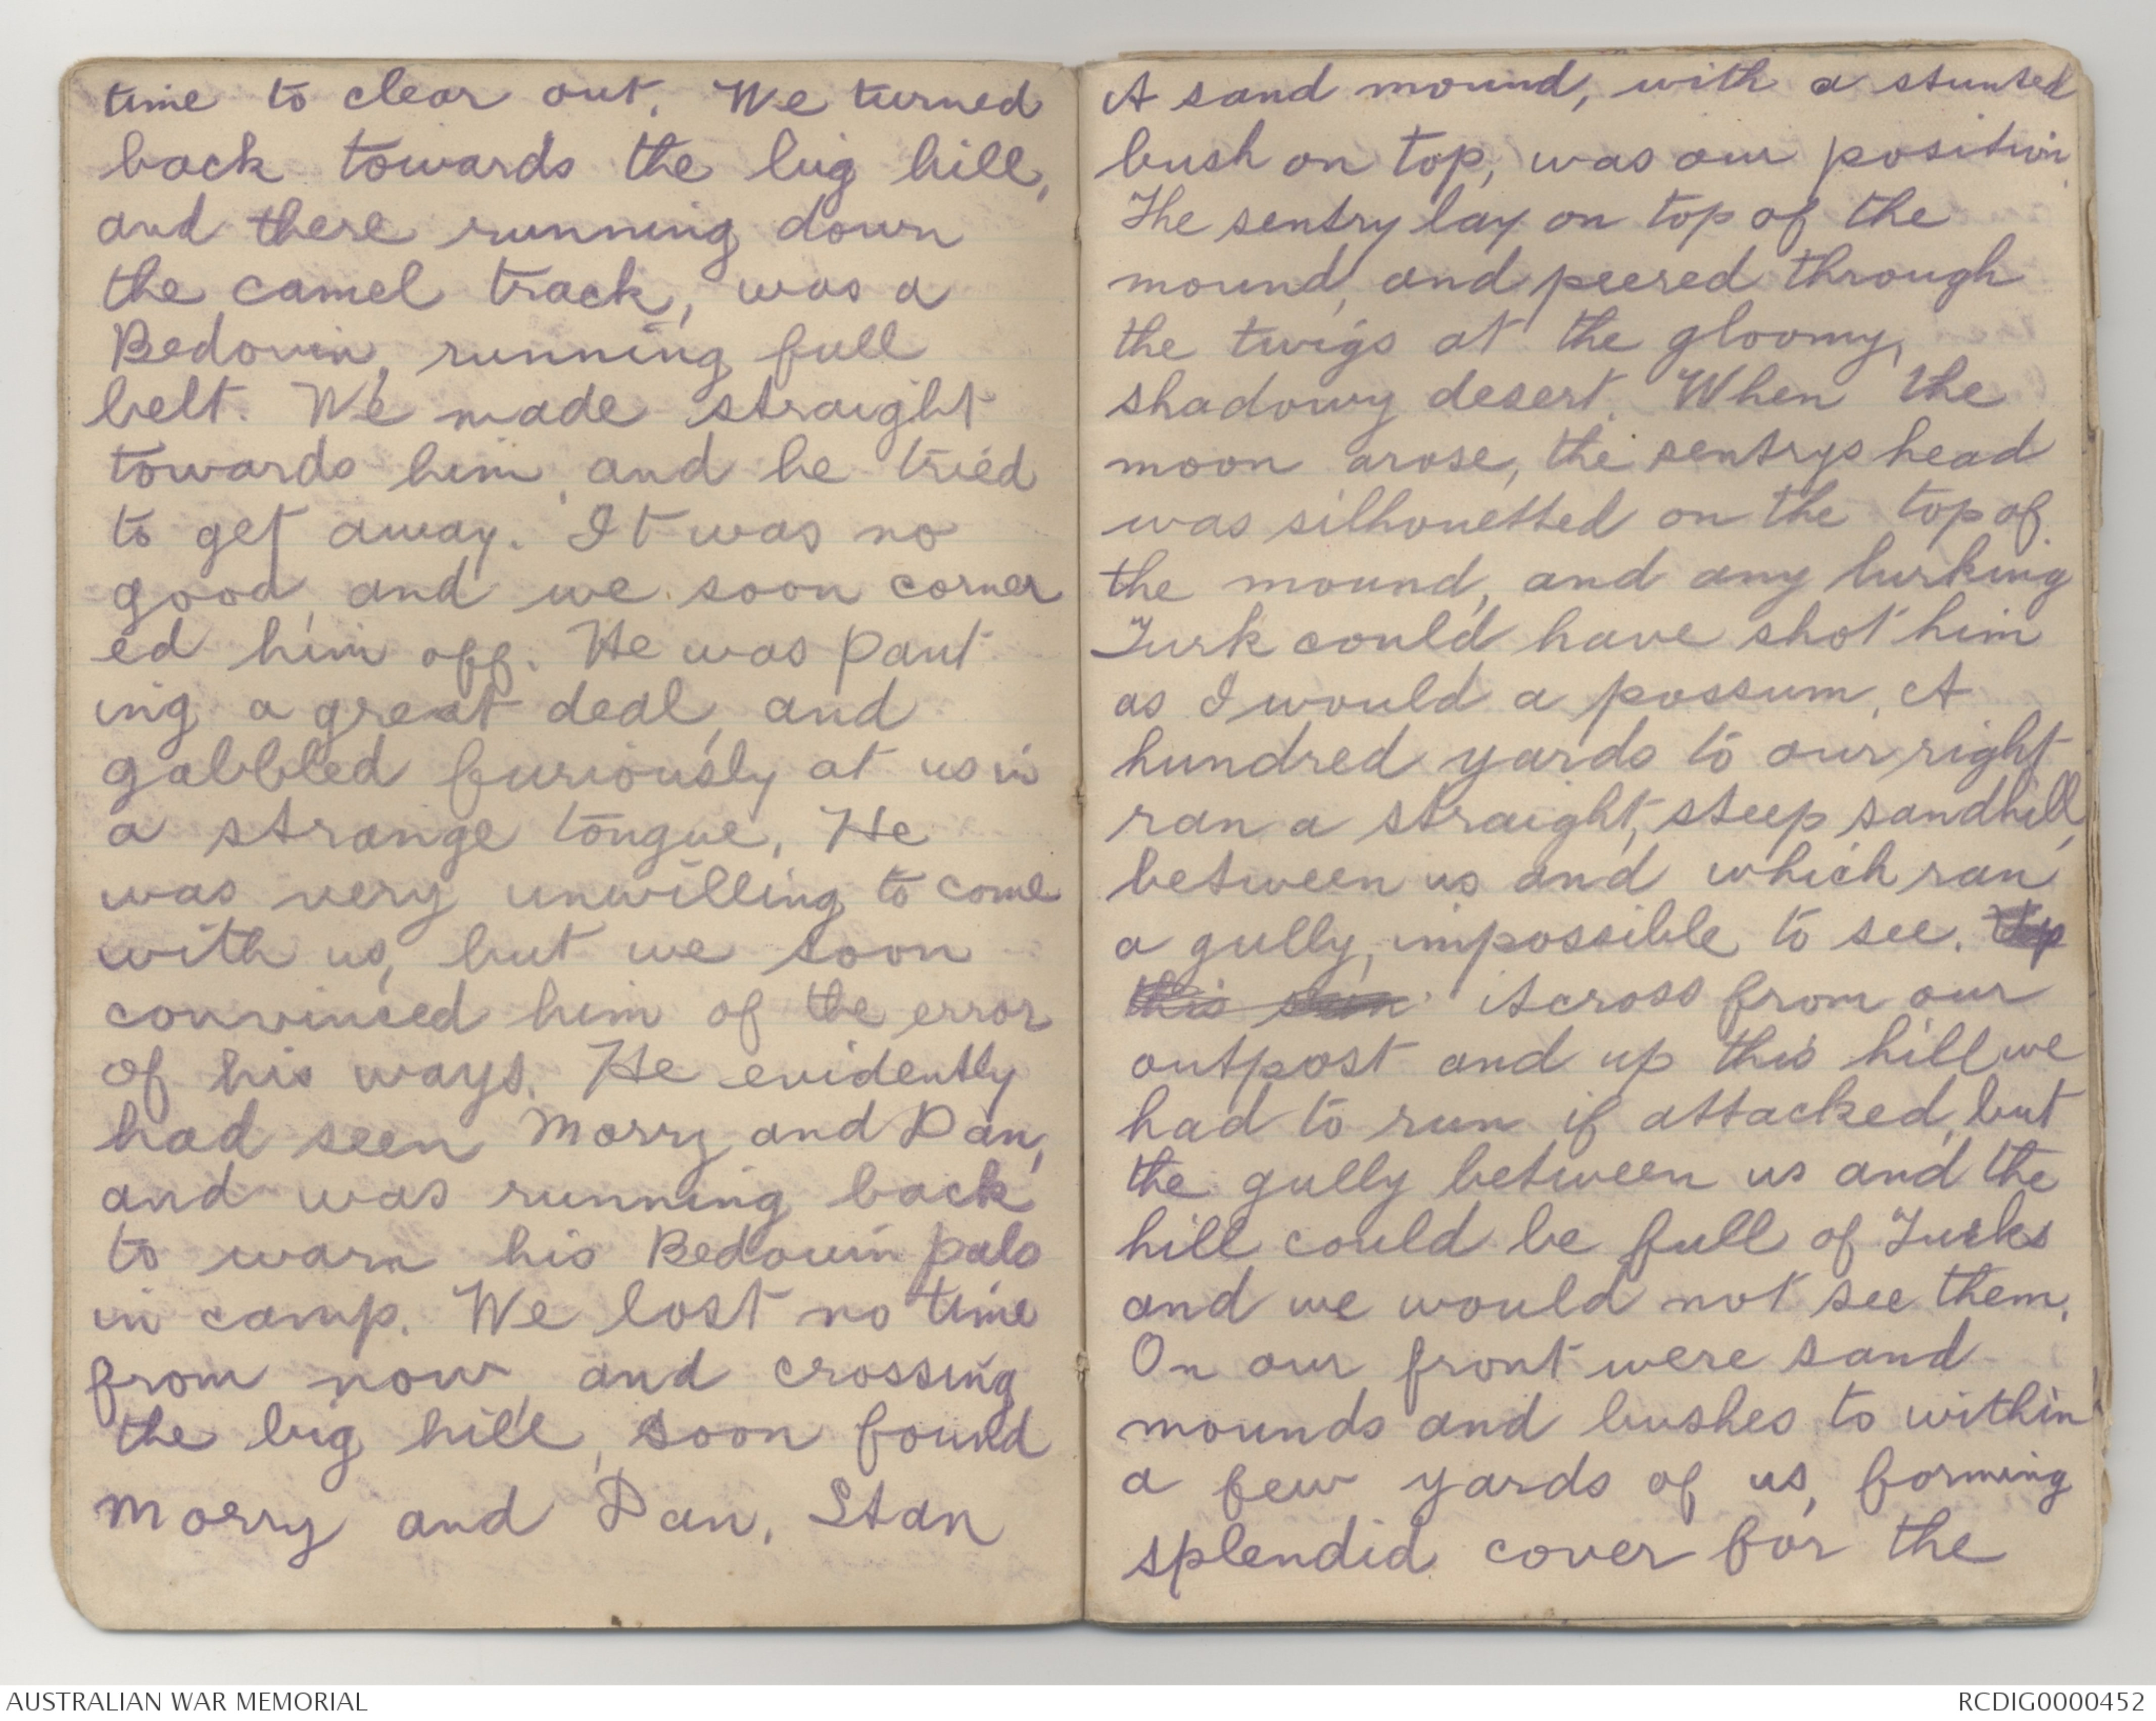 time to clear out. We turned
back towards the big hill,
and there running down
the camel track, was a
Bedouin, running full
belt. We made straight
towards him, and he tried
to get away. It was no
good, and we soon corner
ed him off. He was pant
ing a great deal, and
gabbled furiously at us in
a strange tongue. He
was very unwilling to come
with us, but we soon
convinced him of the error
of his ways. He evidently
had seen Morry and Dan,
and was running back
to warn his Bedouin pals
in camp. We lost no time
from now, and crossing
the big hill, soon found
Morry and Dan, Stan
A sand mound, with a stunted
bush on top, was our position.
The sentry lay on top of the
mound, and peered through
the twigs at the gloomy,
shadowy desert. When the
moon arose, the sentrys head
was silhouetted on the top of
the mound, and any lurking
Turk could have shot him
as I would a possum. A
hundred yards to our right
ran a straight, steep sandhill,
between us and which ran
a gully, impossible to see. Up
this Across from our
outpost and up this hill we
had to run if attacked, but
the gully between us and the
hill could be full of Turks
and we would not see them.
On our front were sand
mounds and bushes to within
a few yards of us, forming
splendid cover for the
AUSTRALIAN WAR MEMORIAL
RCDIG0000452